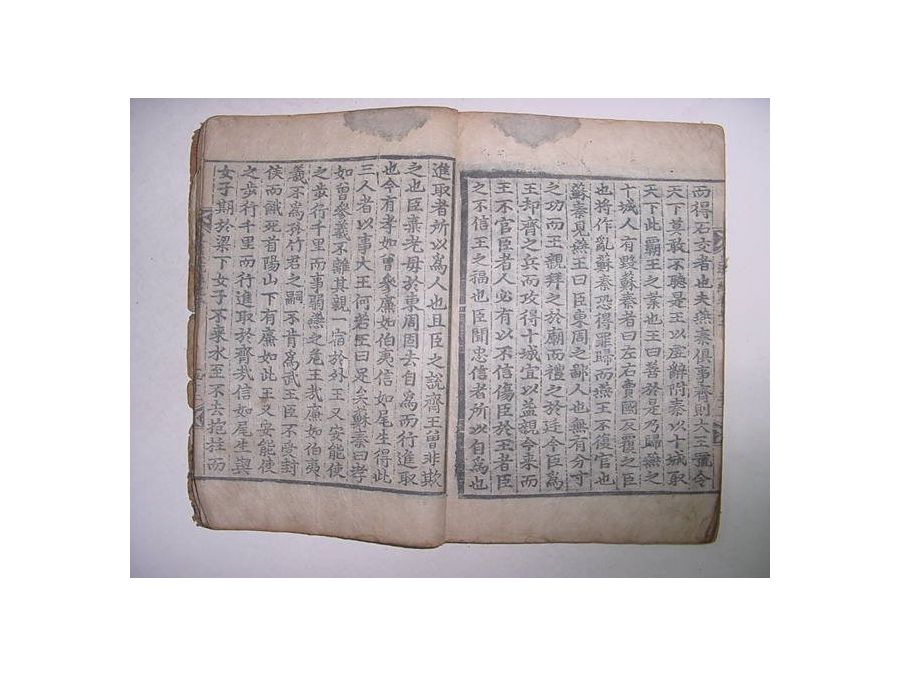 而得石交者也夫燕秦俱事齊則大王號令
天下莫敢不聽是王以虛辭附秦以十城取
天下此霸王之業也王曰善於是乃歸燕之
十城人有毁蘇秦者曰左右賣國反覆之臣
也將作亂蘇秦恐得罪歸而燕王不復官也
蘇秦見燕王曰臣東周之鄙人也無有分寸
之功而王親拜之於廟而禮之於廷今臣爲
王却齊之兵而攻得十城宜以益親今來而
王不官臣者人必有以不信傷臣於王者臣
之不信王之福也臣聞忠信者所以自爲也
進取者所以爲人也且臣之說齊王曾非欺
之也臣棄老母於東周固去自爲而行進取
也今有孝如曾參廉如伯夷信如尾生得此
三人者以事大王何若王曰足矣蘇秦曰孝
如曾參義不離其親一宿於外王又安能使
之步行千里而事弱燕之危王哉廉如伯夷
義不爲孤竹君之嗣不肯爲武王臣不受封
侯而餓死首陽山下有廉如此王又安能使
之步行千里而行進取於齊哉信如尾生與
女子期於梁下女子不來水至不去抱柱而